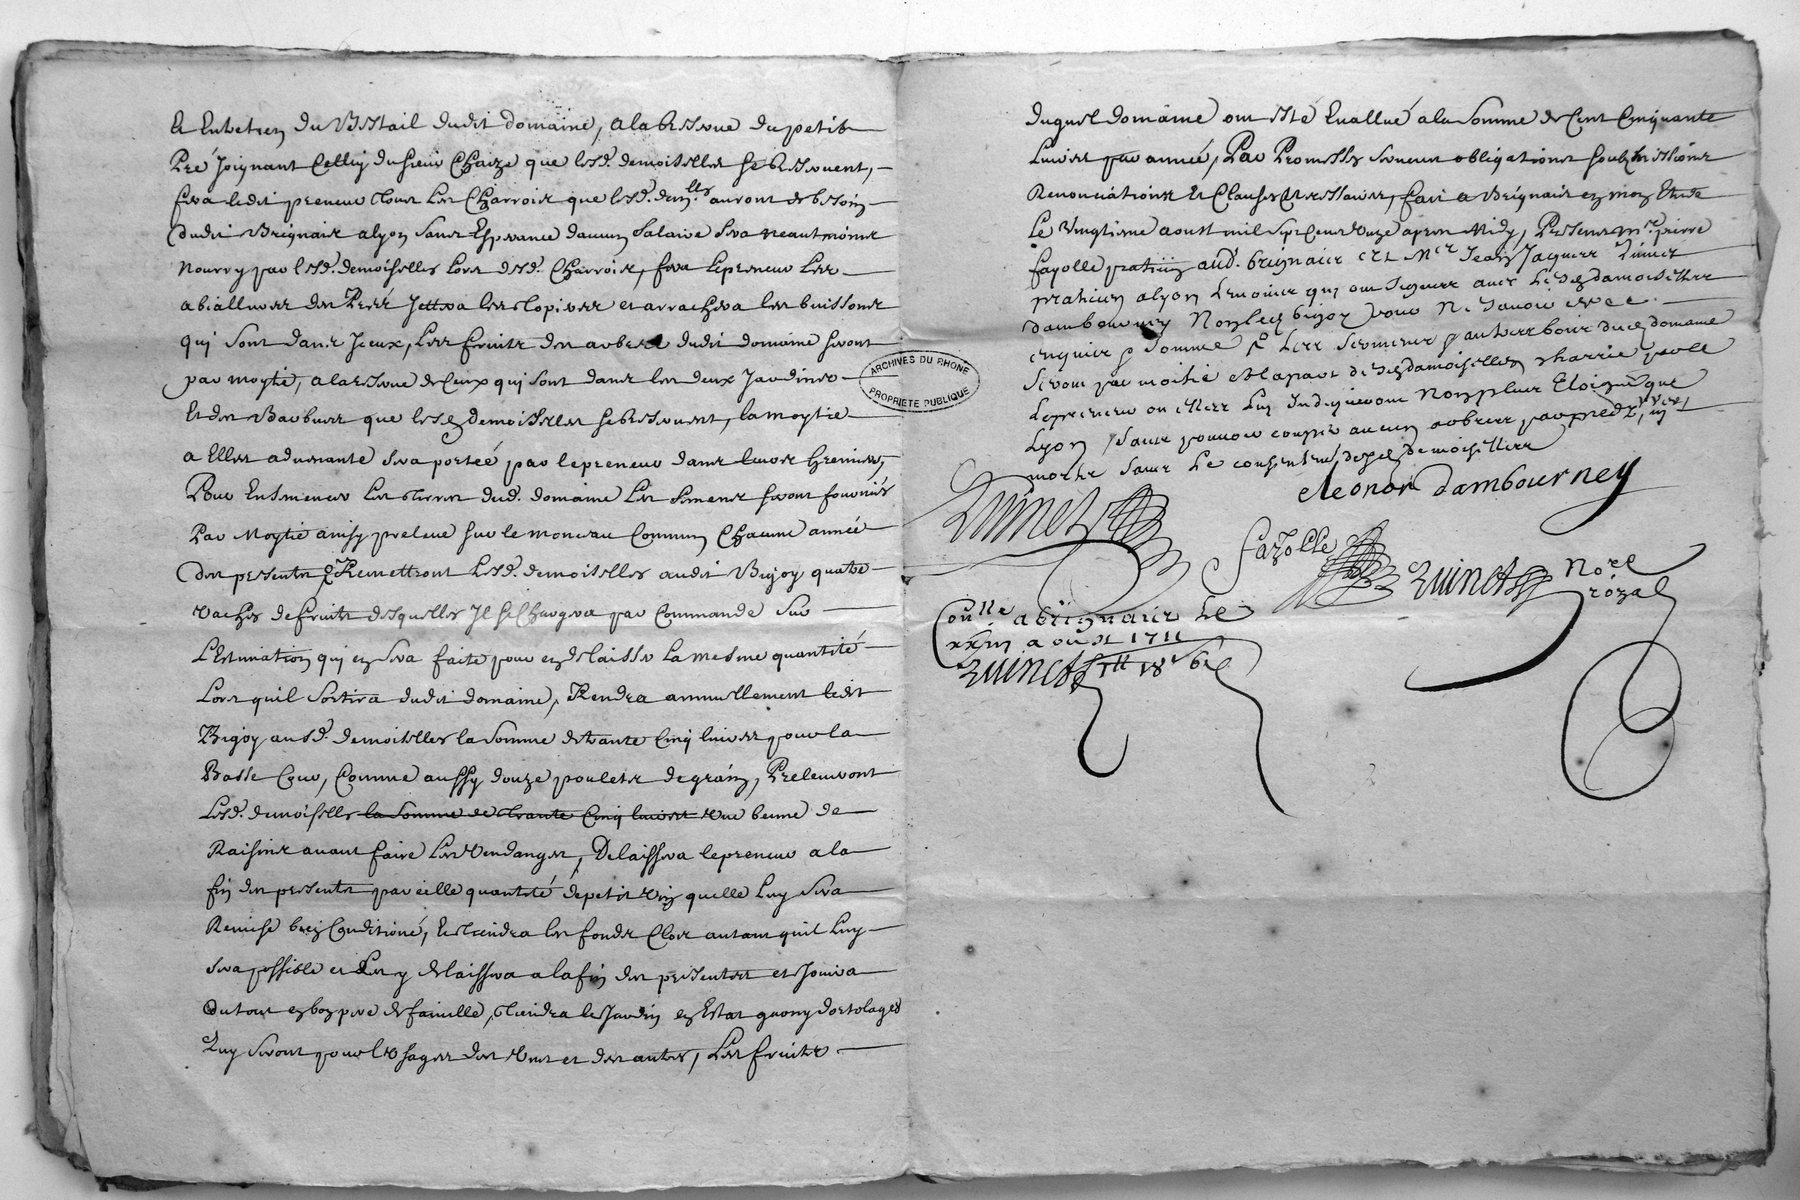 Et Entretien du Bestail dudit domaine, ala Reserve du petit
Pré Joignant Celluy du sieur Chaize que lesd. demoiselles se Reservent,
fera ledit preneur tous les Charrois que lesd. dem.lles auront de besoin
dudit Brignais alyon sans Esperance daucun Salaire sera neantmoins
Nourry par lesd. demoiselles Lors desd. Charrois, fera Lepreneur Les
abialleures des Prés Jettera les topieres et arrachera les buissons
qui sont dans Jceux, Les fruits des arbres dudit domaine seront
par moytié, ala Reserve de Ceux qui sont dans les deux Jardins
Et des que lesd. demoiselles se Reservent, la moytie
a Elles advenante sera portéé par lepreneur dans leurs Greniers,
Pour Ensemencer Les terres dud. domaine Les semens seront fournies
Par Moytié ainsy prelevé sur le monceau Commun Chacune année
des presentes Remettront Lesd. demoiselles audit Bigoy quatre
vaches de fruits desquelles Il se Chargera par Commande sur
L'Estimation qui en sera faite pour en delaisser la mesme quantité
Lors quil sortira dudit domaine, Rendra annuellement ledit
Bigoy ausd. demoiselles la somme de trante Cinq livres pour la
Basse Cour, Comme aussy douze poulets de grain, Preleveront
Lesd. demoiselles la somme de trante Cinq livres une benne de
Raisins avant faire Les Vendanges, Delaissera lepreneur a la
fin des presentes pareille quantité de petit vin quelle Luy sera
Remise bien Conditioné, Et tiendra les fonds Clos autant quil Luy
sera possible et Les y delaissera a la fin des presentes et Jouira
du tout en bon pere de famille, tiendra le Jardin en Estat quon y dortolages
Luy seront pour l'Usages des uns et des autres, Les fruits
duquel domaine ont esté Evallué a la somme de Cent Cinquante
Livres par année, Par Promesses serment obligations soubmissions
Renonciations Et Clauses Necessaires, fait a Brignais en mon Etude
Le Vingtieme aoust mil sept Cent Onze apres Midy, Presents m.re pierre
fayolle praticien aud. brignais Et M.re Jean Jaques Quinet
praticien alyon temoins qui ont signez avec Lesd. damoiselles
dambourney Non led. bigoy pour ne sçavoir de ce
enquier et sommé et Les sermens et autres bois dud. domaine
seront par moitié et la part desd. damoiselles charrié par le
preneur ou elles Luy Indiqueront Non plus Eloigné que
Lyon, sans pouvoir couper aucun arbres par pied
morte sans Le consentement desd. demoiselles
eleonor dambourney
Quinet
fayolle
Quinet No.re
royal
Con.lle a Brignais Le
aoust 1711
Quinet
ARCHIVES DU RHONE
PROPRIETE PUBLIQUE